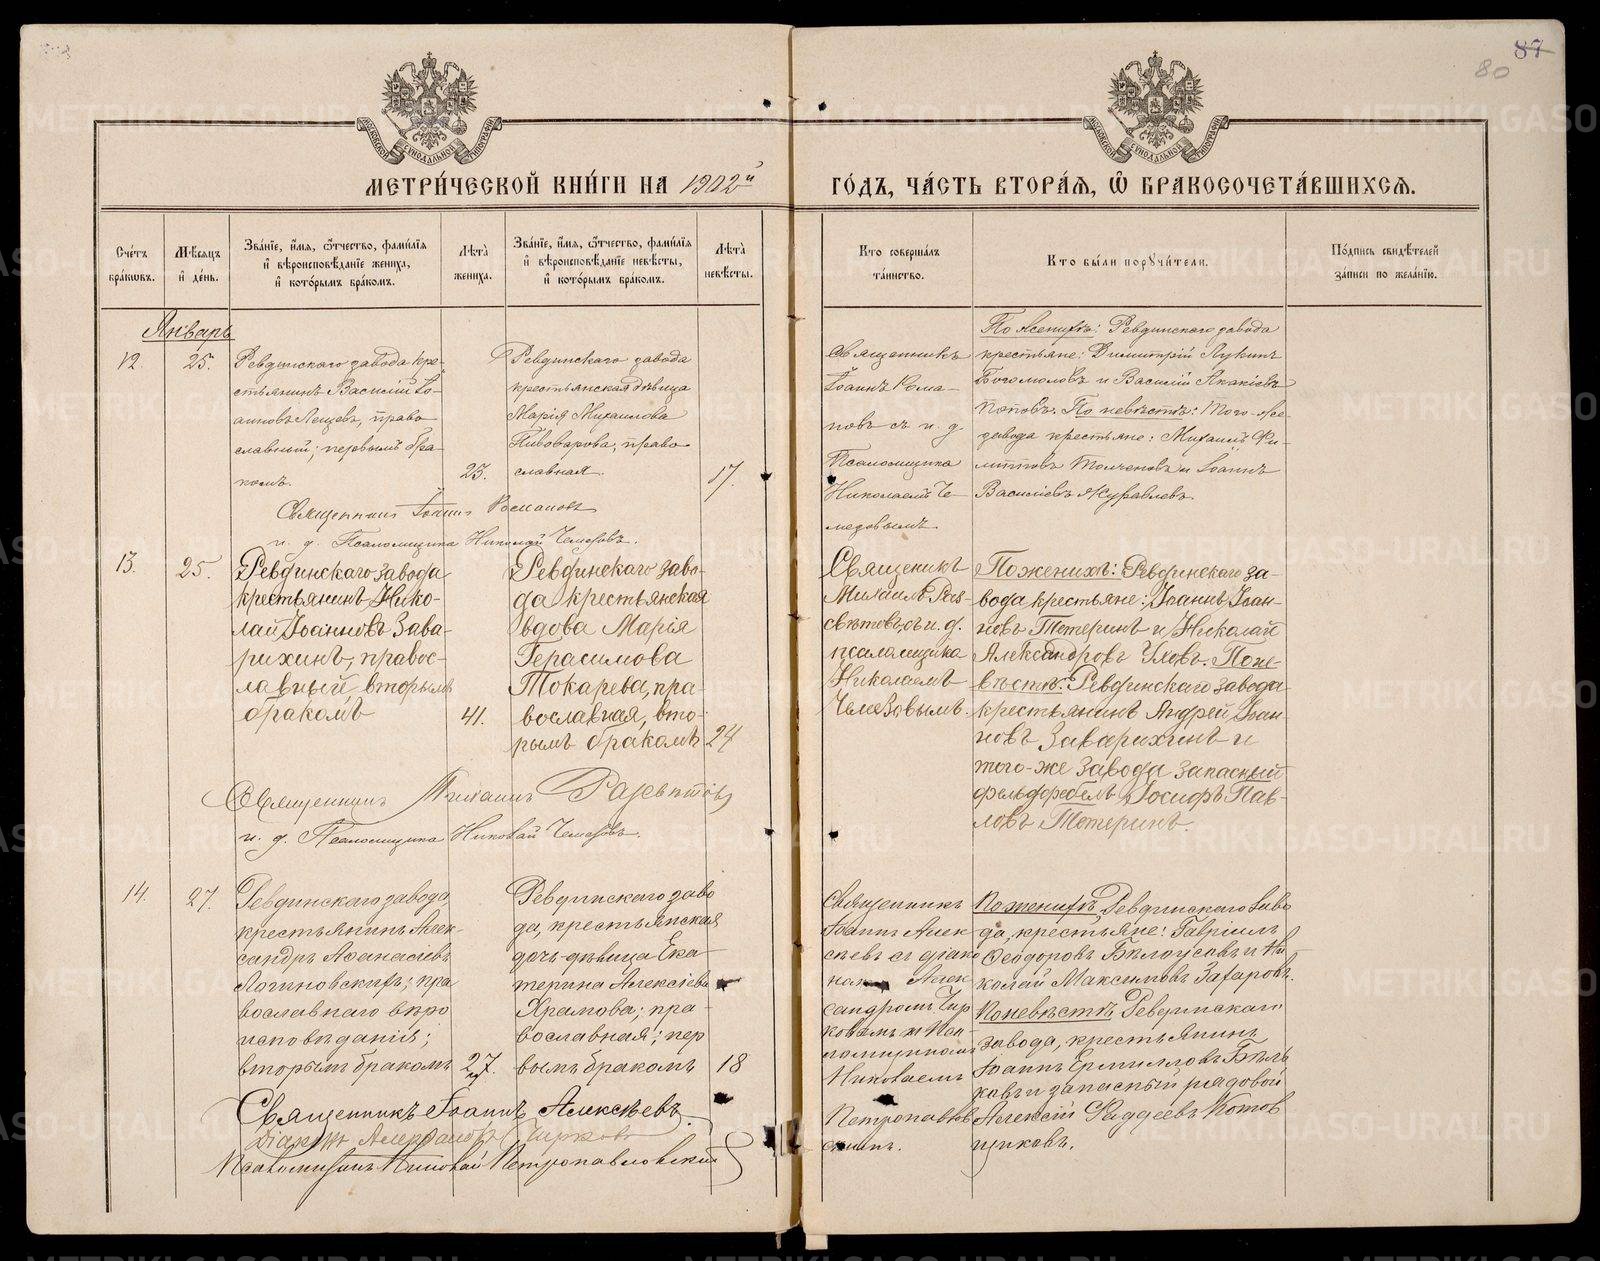 87
80
МОСКОВСКОЙ СУНОДАЛЬНОЙ ТИПОГРАФІИ
МОСКОВСКОЙ СУНОДАЛЬНОЙ ТИПОГРАФІИ
МЕТРИ́ЧЕСКОЙ КНИ́ГИ НА 1902й
ГО́ДЪ, ЧА́СТЬ ВТОРА́Я, Ѡ БРАКОСОЧЕТА́ВШИХСЯ.
Сче́тъ
бра́кωвъ.
Мѣ́сяцъ
и҆ де́нь.
Зва́нїе, и҆́мя, ѻ҆́тчество, фами́лїя
и҆ вѣроисповѣ́данїе жениха̀,
и҆ кото́рымъ бра́комъ.
Лѣта̀
жениха̀.
Зва́нїе, и҆́мя, ѻ҆́тчество, фами́лїя
и҆ вѣроисповѣ́данїе невѣ́сты,
и҆ кото́рымъ бра́комъ.
Лѣта̀
невѣ́сты.
Кто̀ соверша́лъ
та́инство.
Кто̀ бы́ли порꙋчи́тели.
По́дпись свидѣ́телей
за́писи по жела́нїю.
Январь
12.
25.
Ревдинскаго завода кре-
стьянинъ Василій Іо-
анновъ Лещевъ, право
славный; первымъ бра-
комъ.
23.
Ревдинскаго завода
крестьянская дѣвица
Марія Михаилова
Пивоварова, право-
славная.
17.
Священникъ
Іоаннъ Рома-
новъ съ и. д.
Псаломщика
Николаемъ Че
мезовымъ.
По женихѣ: Ревдинскаго завода
крестьяне: Димитрій Лукинъ
Богомоловъ и Василій Акакіевъ
Поповъ. По невѣстѣ: того-же
завода крестьяне: Михаилъ Фи-
липповъ Толченовъ и Іоаннъ
Василіевъ Журавлевъ.
Священникъ Іоаннъ Романовъ
и. д. Псаломщика Николай Чемезовъ.
13.
25.
Ревдинскаго завода
крестьянинъ Нико-
лай Іоанновъ Зава-
рихинъ, правос-
лавный, вторымъ
бракомъ
41.
Ревдинскаго заво-
да крестьянская
вдова Марія
Герасимова
Токарева, пра-
вославная, вто-
рымъ бракомъ
24
Священикъ
Михаилъ Раз-
свѣтовъ, съ и. д.
псаломщика
Николаемъ
Чемезовымъ.
По женихѣ: Ревдинскаго за-
вода крестьяне: Іоаннъ Іоан-
новъ Тетеринъ и Николай
Александровъ Уховъ. По не-
вѣстѣ: Ревдинскаго завода
крестьянинъ Андрей Іоан-
новъ Заварихинъ и
того-же завода запасный
фельдфебель Іосифъ Пав-
ловъ Тетеринъ.
Священникъ Михаилъ Разсвѣтовъ
и. д. Псаломщика Николай Чемезовъ.
14.
27.
Ревдинскаго завода,
крестьянинъ Алек-
сандръ Аѳанасіевъ
Логиновскихъ; пра
вославнаго вѣро
исповѣданія;
вторымъ бракомъ
27.
Ревдинскаго заво
да, крестьянская
дочь-дѣвица Ека
терина Алексіева
Храмова; пра-
вославная; пер
вымъ бракомъ
18
Священникъ
Іоаннъ Алек
сѣевъ съ діако
номъ Алек
сандромъ Чир
ковымъ и Пса-
ломщикомъ
Николаемъ
Петропавлов
скимъ.
По женихѣ Ревдинскаго заво
да, крестьяне: Гавріилъ
Ѳеодоровъ Бѣлоусовъ и Ни-
колай Максимовъ Захаровъ.
По невѣстѣ Ревдинскаго
завода, крестьянинъ
Іоаннъ Ермилловъ Бѣль
ковъ и запасный рядовой
Алексій Фаддеевъ Котов
щиковъ.
Священникъ Іоаннъ Алексѣевъ.
Діаконъ Александръ Чирковъ
Псаломщикъ Николай Петропавловскій